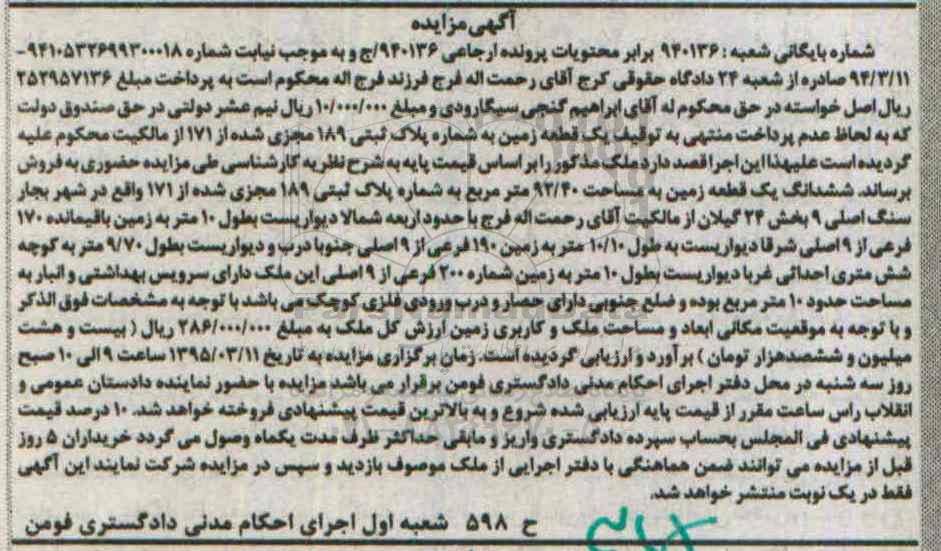 آگهی مزایده
شماره بایگانی شعبه : ۹۴۰۱۳۶ برابر محتویات پرونده ارجاعی ۹۴۰۱۳۶/ج و به موجب نیابت شماره ۹۴۱۰۵۳۲۶۹۹۳۰۰۰۱۸-
۹۴/۳/۱۱ صادره از شعبه ۲۴ دادگاه حقوقی کرج آقای رحمت اله فرج فرزند فرج اله محکوم است به پرداخت مبلغ ۲۵۲۹۵۷۱۳۶
ریال اصل خواسته در حق محکوم له آقای ابراهیم گنجی سیگارودی و مبلغ ۱۰/۰۰۰/۰۰۰ ریال نیم عشر دولتی در حق صندوق دولت
که به لحاظ عدم پرداخت منتهی به توقیف یک قطعه زمین به شماره پلاک ثبتی ۱۸۹ مجزی شده از ۱۷۱ از مالکیت محکوم علیه
گردیده است علیهذا این اجرا قصد دارد ملک مذکور را بر اساس قیمت پایه به شرح نظریه کارشناسی طی مزایده حضوری به فروش
برساند. ششدانگ یک قطعه زمین به مساحت ۹۲/۴۰ متر مربع به شماره پلاک ثبتی ۱۸۹ مجزی شده از ۱۷۱ واقع در شهر بجار
سنگ اصلی ۹ بخش ۲۴ گیلان از مالکیت آقای رحمت اله فرج با حدود اربعه شمالا دیواریست بطول ۱۰ متر به زمین باقیمانده ۱۷۰
فرعی از ۹ اصلی شرقا دیواریست به طول ۱۰/۱۰ متر به زمین ۱۹۰ فرعی از ۹ اصلی جنوبا درب و دیواریست بطول ۹/۷۰ متر به کوچه
شش متری احداثی غربا دیواریست بطول ۱۰ متر به زمین شماره ۲۰۰ فرعی از ۹ اصلی این ملک دارای سرویس بهداشتی و انبار به
مساحت حدود ۱۰ متر مربع بوده و ضلع جنوبی دارای حصار و درب ورودی فلزی کوچک می باشد با توجه به مشخصات فوق الذکر
و با توجه به موقعیت مکانی ابعاد و مساحت ملک و کاربری زمین ارزش کل ملک به مبلغ ۲۸۶/۰۰۰/۰۰۰ ریال ( بیست و هشت
میلیون و ششصدهزار تومان ) برآورد و ارزیابی گردیده است. زمان برگزاری مزایده به تاریخ ۱۳۹۵/۰۳/۱۱ ساعت ۹ الی ۱۰ صبح
روز سه شنبه در محل دفتر اجرای احکام مدنی دادگستری فومن برقرار می باشد مزایده با حضور نماینده دادستان عمومی و
انقلاب راس ساعت مقرر از قیمت پایه ارزیابی شده شروع و به بالاترین قیمت پیشنهادی فروخته خواهد شد. ۱۰ درصد قیمت
پیشنهادی فی المجلس بحساب سپرده دادگستری واریز و مابقی حداکثر ظرف مدت یکماه وصول می گردد خریداران ۵ روز
قبل از مزایده می توانند ضمن هماهنگی با دفتر اجرایی از ملک موصوف بازدید و سپس در مزایده شرکت نمایند این آگهی
فقط در یک نوبت منتشر خواهد شد.
ح ۵۹۸ شعبه اول اجرای احکام مدنی دادگستری فومن